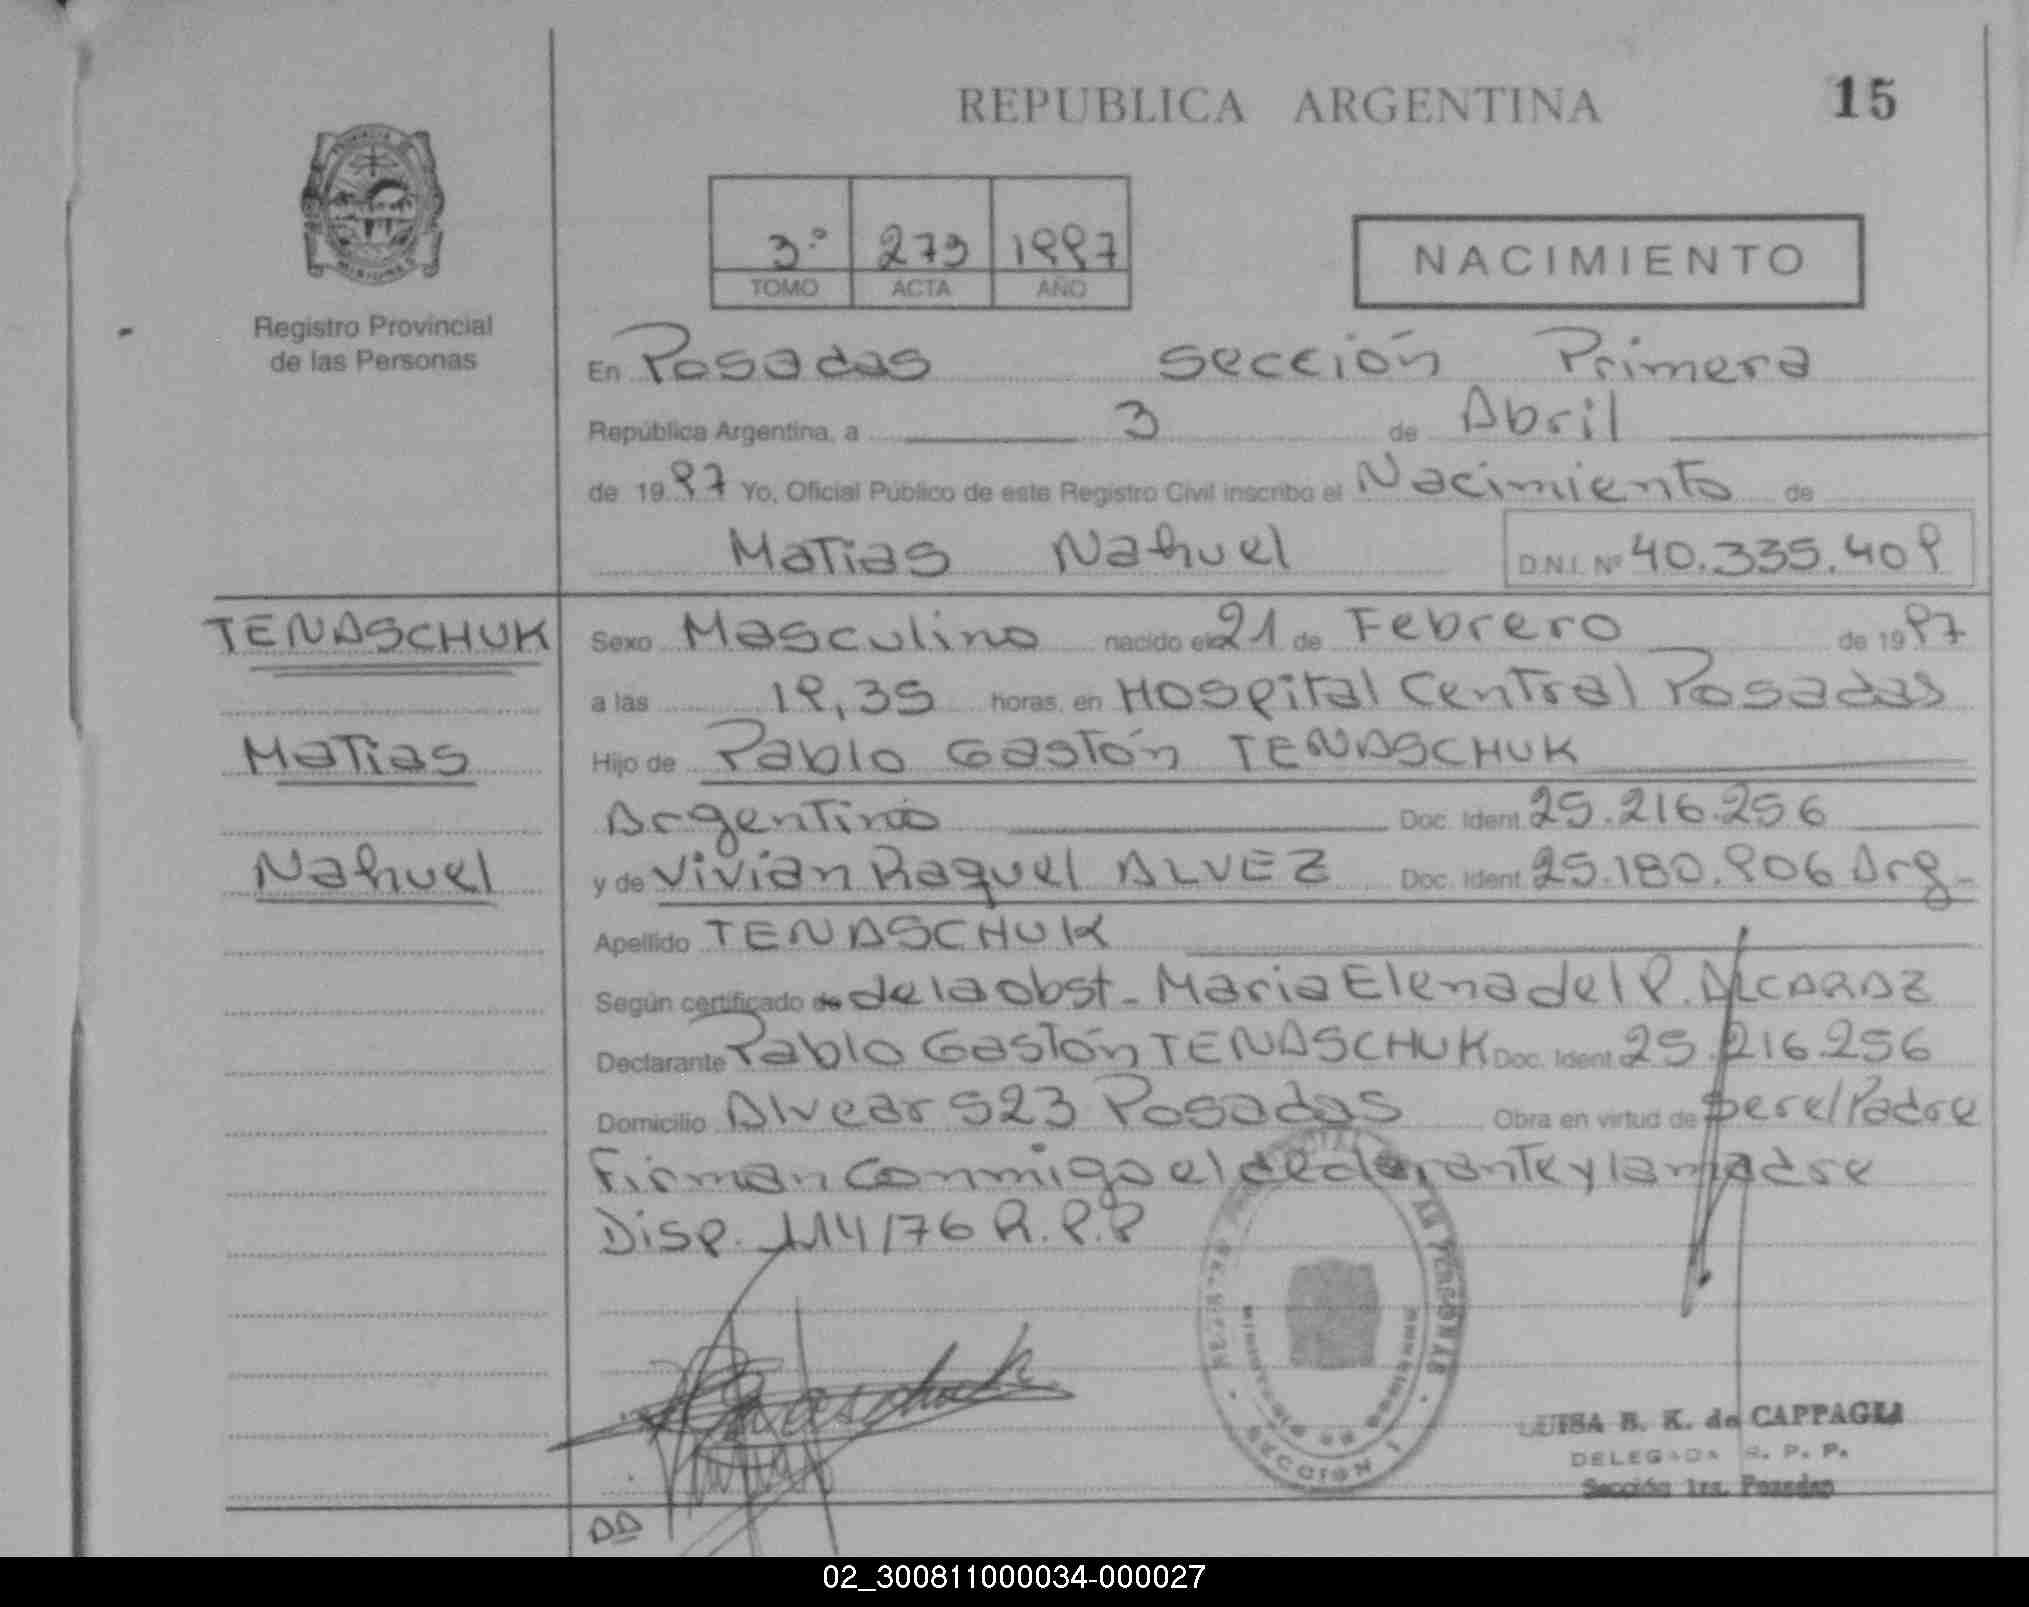 REPUBLICA ARGENTINA
15
3º 273 1997
TOMO ACTA AÑO
NACIMIENTO
Registro Provincial
de las Personas
En Posadas sección Primera
República Argentina, a 3 de Abril
de 1997 Yo, Oficial Público de este Registro Civil inscribo el Nacimiento de
Matias Nahuel D.N.I. Nº 40.335.409
TENASCHUK
Matias
Nahuel
Sexo Masculino nacido el 21 de Febrero de 1997
a las 19,35 horas, en Hospital Central Posadas
Hijo de Pablo Gastón TENASCHUK
Argentino Doc. Ident. 25.216.256
y de Vivian Raquel ALVEZ Doc. Ident. 25.180.906 Arg.
Apellido TENASCHUK
Según certificado de de la obst. Maria Elena del P. ALCARAZ
Declarante Pablo Gastón TENASCHUK Doc. Ident. 25.216.256
Domicilio Alvear 523 Posadas Obra en virtud de ser el Padre
Firman conmigo el declarante y la madre
Disp. 114/76 R.P.P
SECCION 1
LUISA B. K. de CAPPAGLI
DELEGADA R. P. P.
Sección 1ra. Posadas
02_300811000034-000027